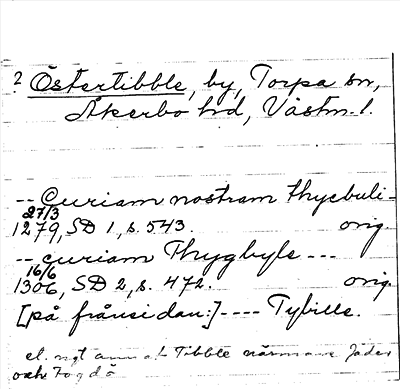 ? Östertibble, by, Torpa sn,
Åkerbo hd, Västm. l.
-- Curiam nostram thycbuli-
27/3
1279, SD 1, s. 543. orig.
-- curiam Thygbyle ---
16/6
1306, SD 2, s. 472. orig.
[på frånsidan:] ---- Tybille.
el. ngt annat Tibble närmare Jäder
och Fogdö